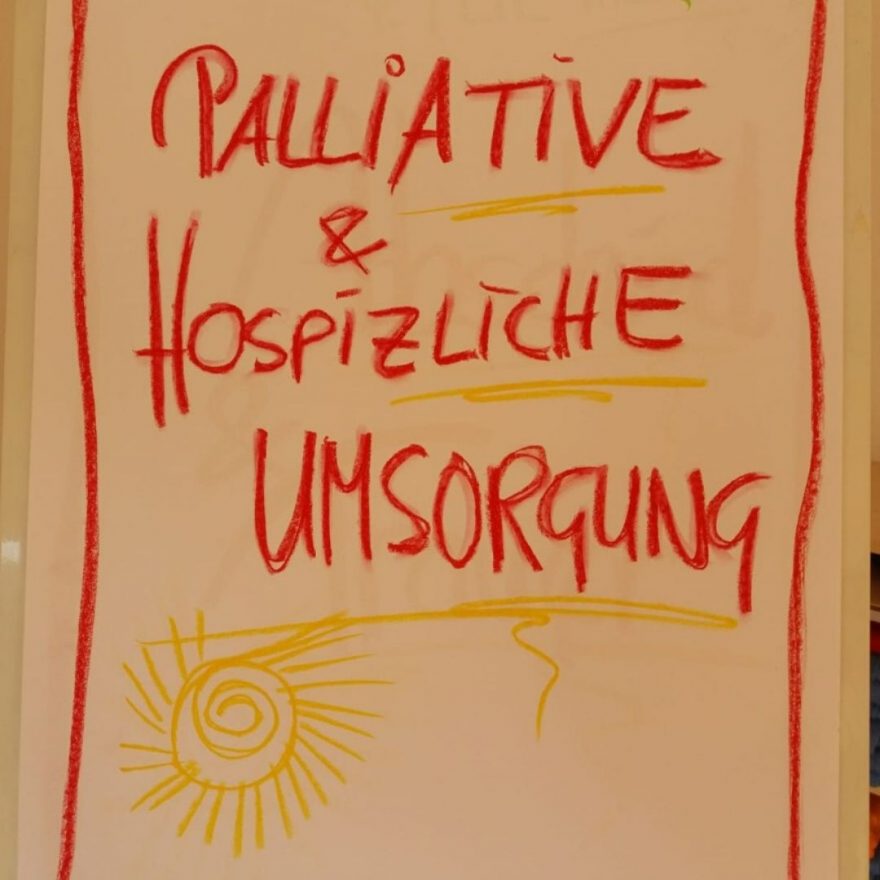 PALLiATiVE
&
HOSPiZLiCHE
UMSORGUNG